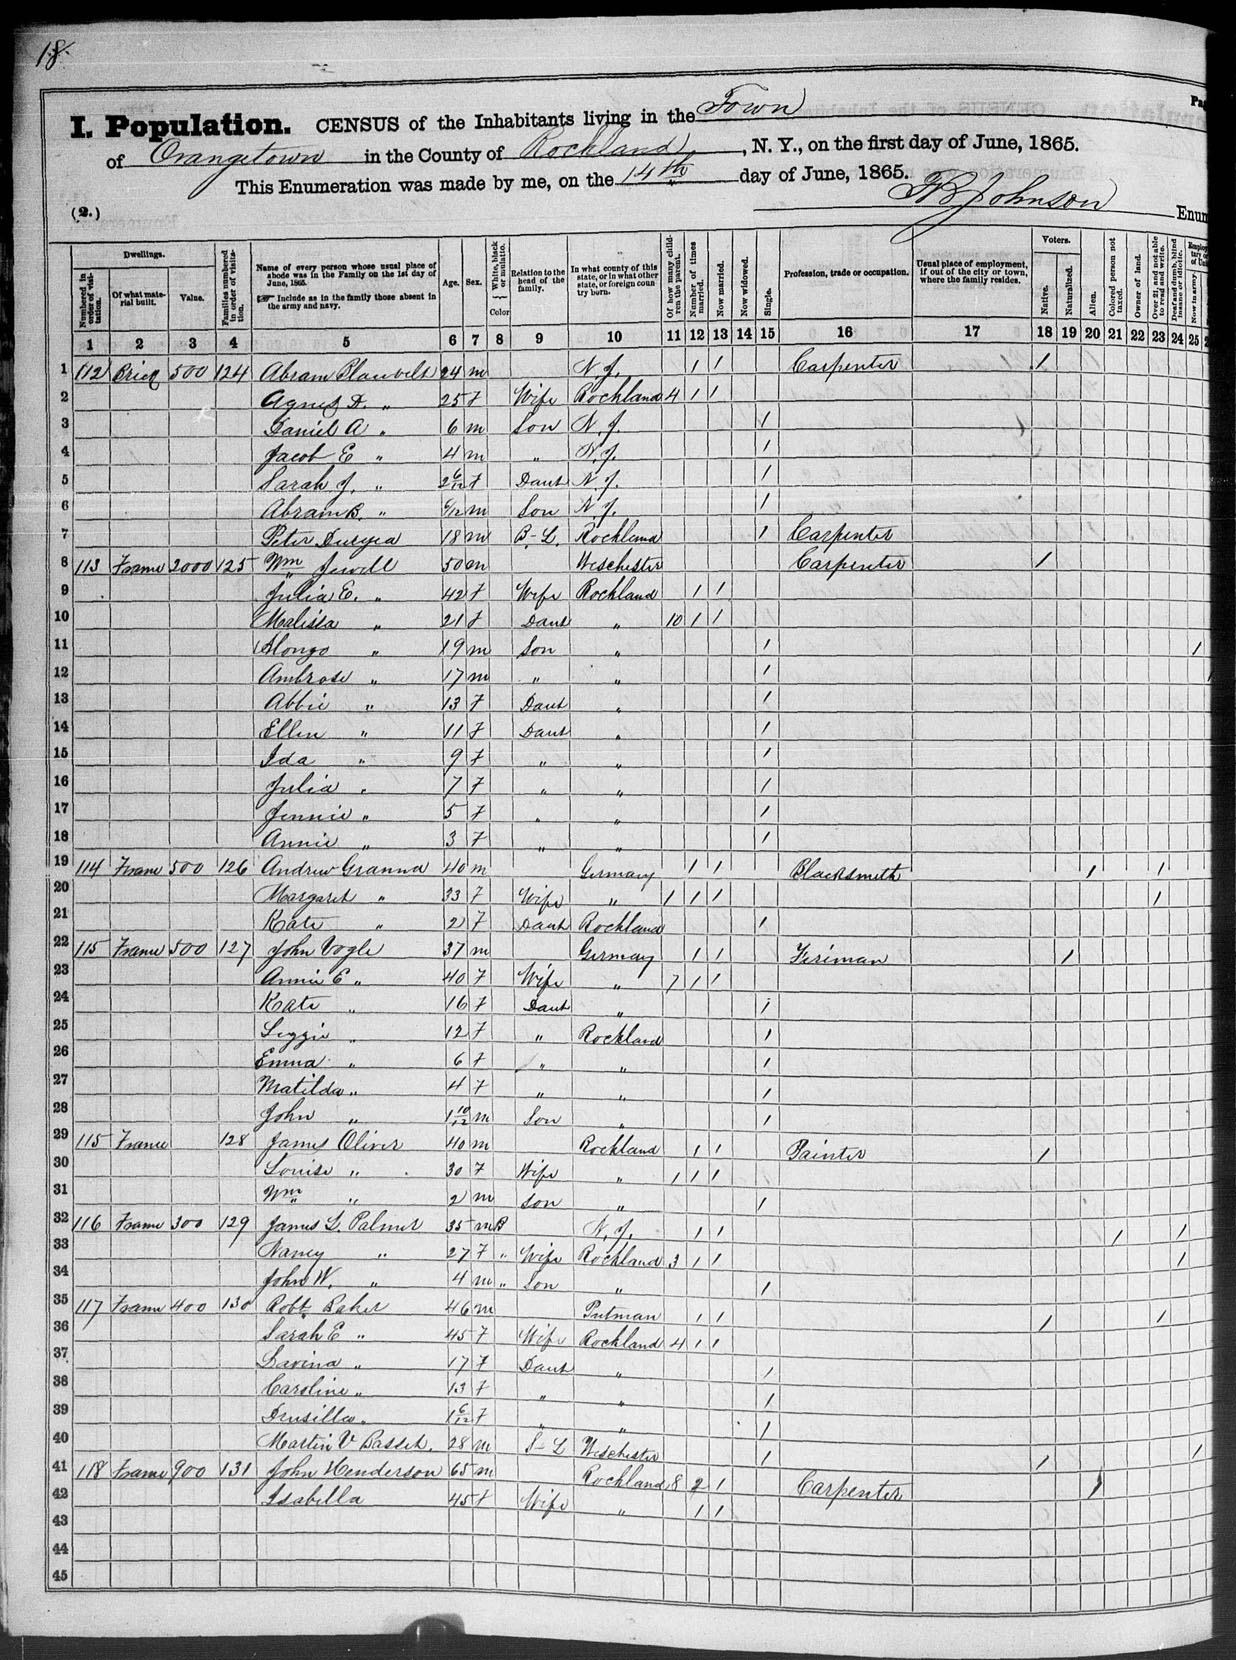 18
I. Population. CENSUS of the Inhabitants living in the Town
of Orangetown in the County of Rockland, N. Y., on the first day of June, 1865.
This Enumeration was made by me, on the 14th day of June, 1865.
(2.) Johnson Enum
Numbered in order of visitation. Dwellings. Of what material built. Value. Families numbered in order of visitation. Name of every person whose usual place of abode was in the Family on the 1st day of June, 1865. Include as in the family those absent in the army and navy. Age. Sex. White, black or mulatto. Color Relation to the head of the family. In what county of this state, or in what other state, or foreign country born. Of how many children the parent. Number of times married. Now married. Now widowed. Single. Profession, trade or occupation. Usual place of employment, if out of the city or town, where the family resides. Voters. Native. Naturalized. Alien. Colored person not taxed. Owner of land. Over 21, and not able to read and write. Deaf and dumb, blind insane or idiotic. Now in army.
1 2 3 4 5 6 7 8 9 10 11 12 13 14 15 16 17 18 19 20 21 22 23 24 25
1 112 Brick 500 124 Abram Blauvelt 24 m N. J. 1 1 Carpenter 1
2 Agnes D. " 25 f Wife Rockland 4 1 1
3 Daniel A " 6 m Son N. J. 1
4 Jacob E " 4 m " N. J. 1
5 Sarah J. " 2 6/12 f Daut N. J. 1
6 Abram B. " 6/12 m Son N. J. 1
7 Peter 18 m B.-L. Rockland 1 Carpenter
8 113 Frame 2000 125 Wm Jewell 50 m Weschester Carpenter 1
9 Julia E. " 42 f Wife Rockland 1 1
10 Malissa " 21 f Daut " 10 1 1
11 Alonzo " 19 m Son " 1 1
12 Ambrose " 17 m " " 1
13 Abbie " 13 F Daut " 1
14 Ellen " 11 F Daut " 1
15 Ida " 9 F " " 1
16 Julia " 7 F " " 1
17 Jennie " 5 F " " 1
18 Annie " 3 F " " 1
19 114 Frame 500 126 Andrew Granna 40 m Germany 1 1 Blacksmith 1 1
20 Margaret " 33 F Wife " 1 1 1 1
21 Kate " 2 F Daut Rockland 1
22 115 Frame 500 127 John Vogle 37 m Germany 1 1 Fireman 1
23 Annie E " 40 F Wife " 7 1 1
24 Kate " 16 F Daut " 1
25 Lizzie " 12 F " Rockland 1
26 Emma " 6 F " " 1
27 Matilda " 4 F " " 1
28 John " 1 10/12 m Son " 1
29 115 Frame 128 James Oliver 40 m Rockland 1 1 Painter 1
30 Louise " 30 F Wife " 1 1 1
31 Wm " 2 m Son " 1
32 116 Frame 300 129 James L. Palmer 35 m B N. J. 1 1 1 1
33 Nancy " 27 F " Wife Rockland 3 1 1 1
34 John W. " 4 m " Son " 1
35 117 Frame 400 130 Robt Baker 46 m Putman 1 1 1 1
36 Sarah E " 45 F Wife Rockland 4 1 1
37 Lavina " 17 F Daut " 1
38 Caroline " 13 F " " 1
39 Drusilla " 1 6/12 F " " 1
40 Martin V Basset. 28 m S-L Weschester 1 1 1
41 118 Frame 900 131 John Henderson 65 m Rockland 8 2 1 Carpenter 1
42 Isabella 45 f Wife " 1 1
43
44
45